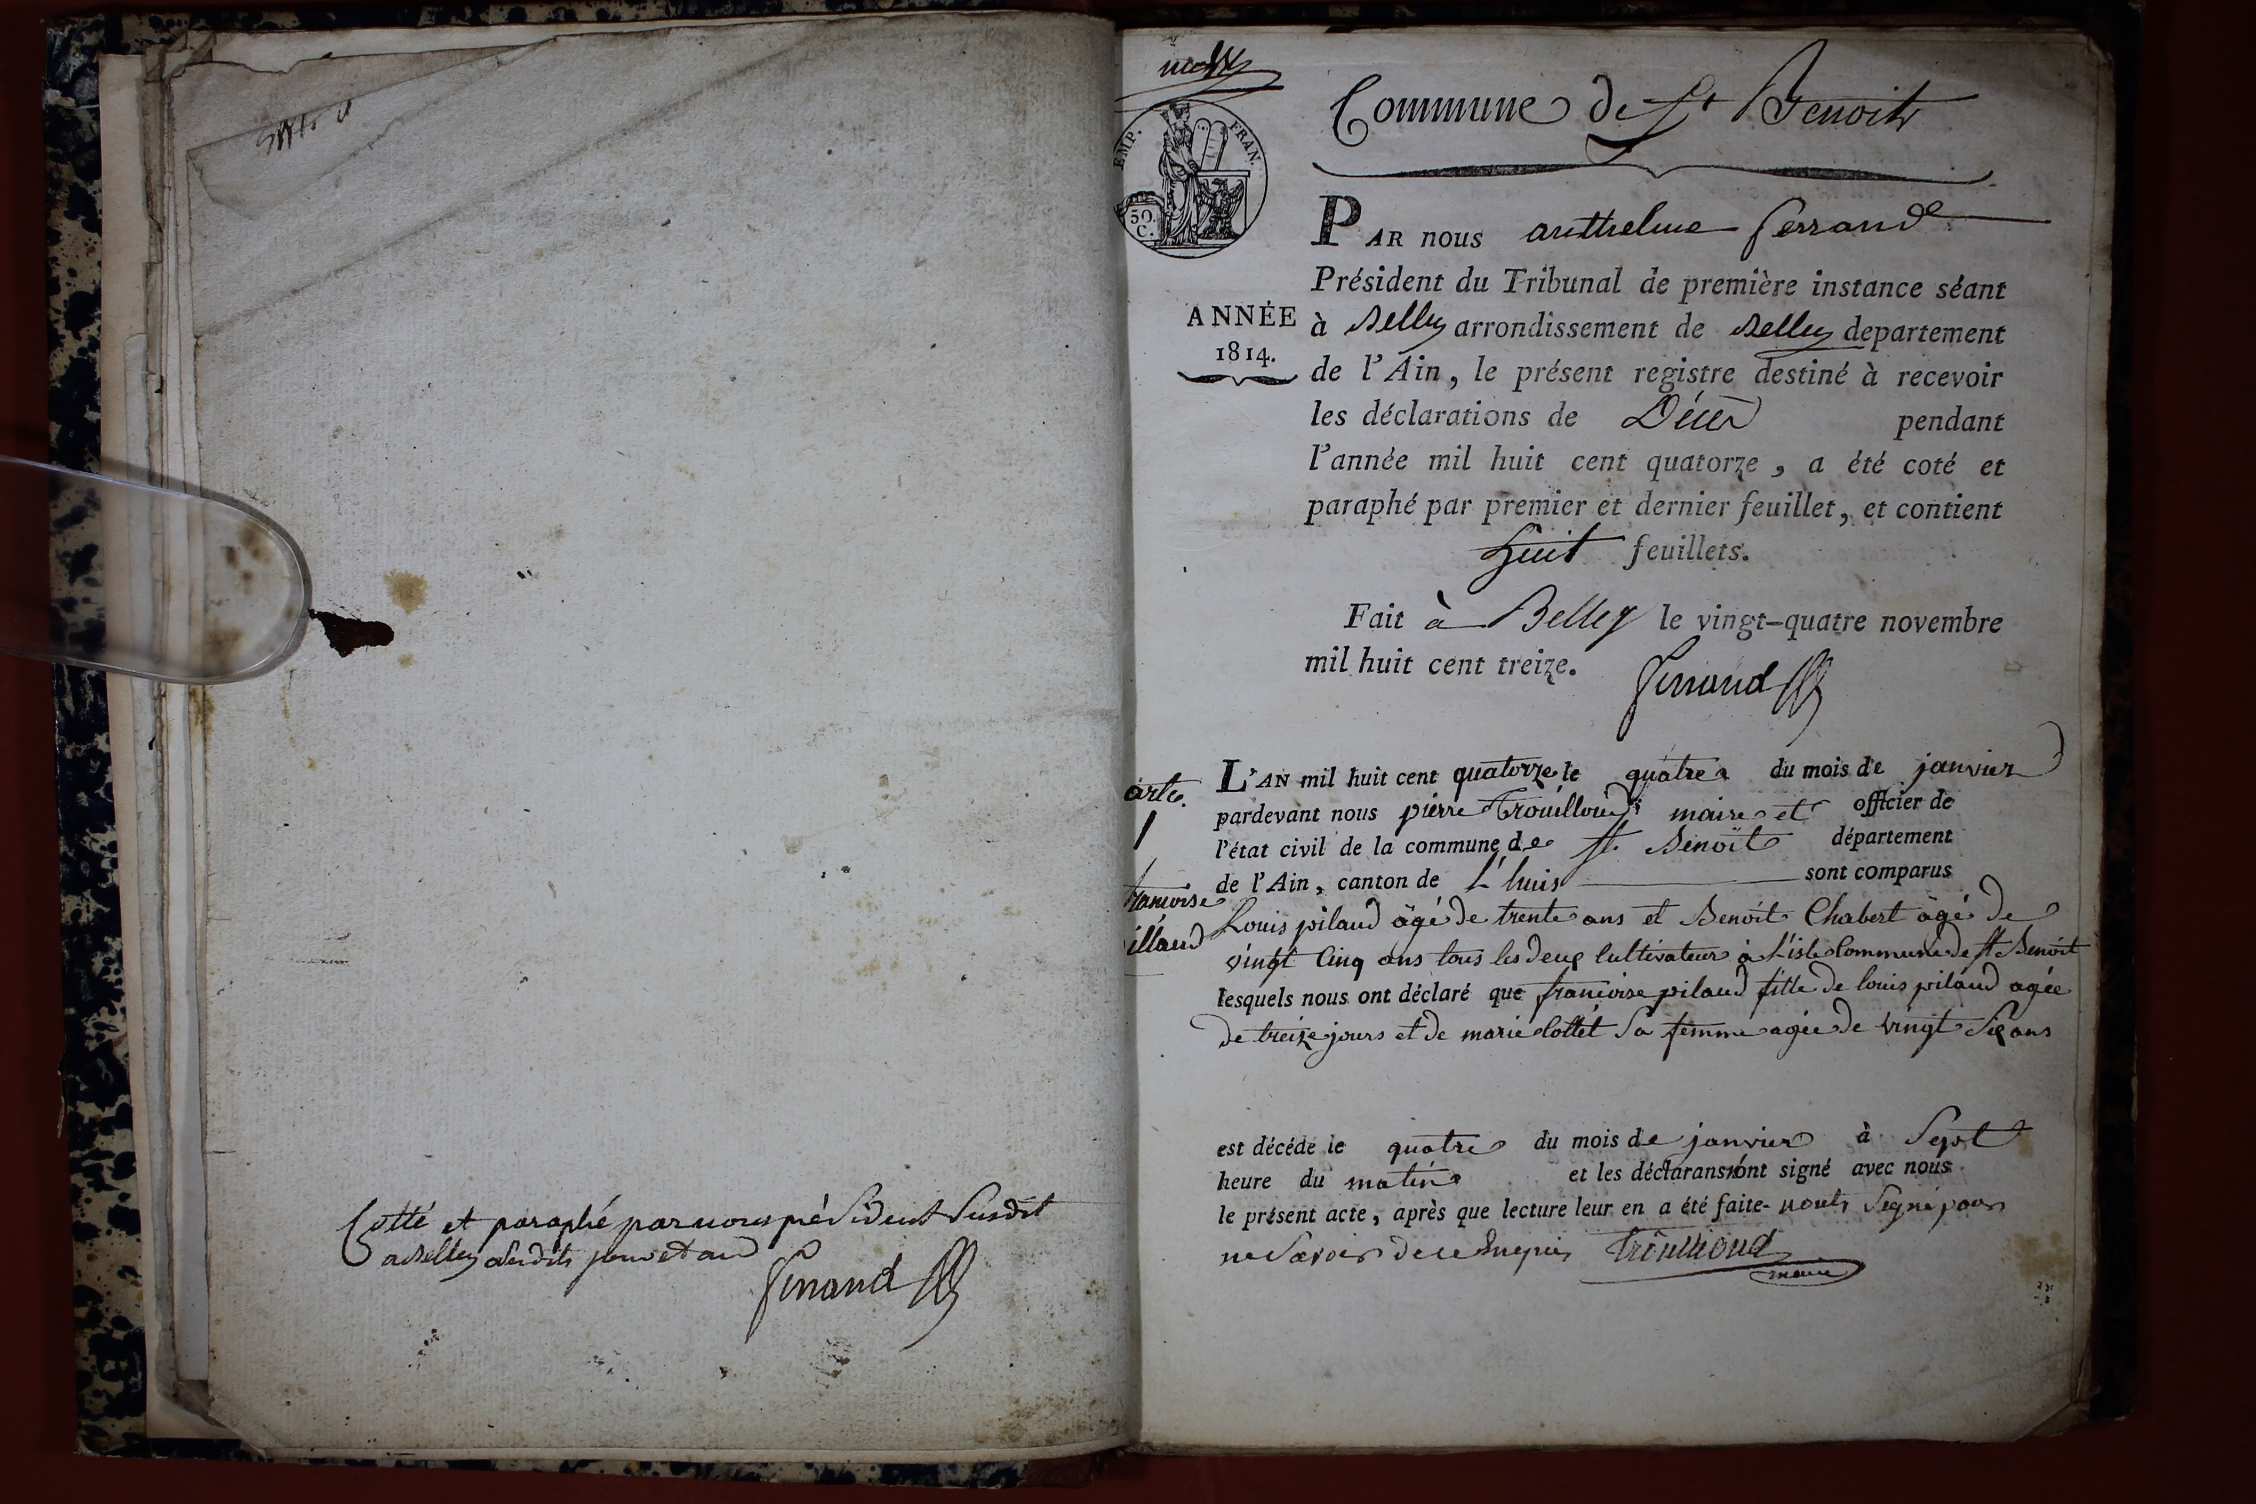 Cotté et paraphé par nous président susdit
a Belley susdits jour et an
Ferrand
Commune de St Benoit
EMP. FRAN.
50.
C.
ANNÉE
1814.
PAR nous anthelme ferrand
Président du Tribunal de première instance séant
à Belley arrondissement de Belley departement
de l'Ain, le présent registre destiné à recevoir
les déclarations de Décès pendant
l'année mil huit cent quatorze, a été coté et
paraphé par premier et dernier feuillet, et contient
huit feuillets.
Fait à Belley le vingt-quatre novembre
mil huit cent treize.
Ferrand
arte.
1
francoise
illaud
L'AN mil huit cent quatorze le quatre du mois de janvier
pardevant nous pierre Trouilloud maire et officier de
l'état civil de la commune de st. Benoit département
de l'Ain, canton de L'huis sont comparus
Louis pilaud âgé de trente ans et Benoit Chabert âgé de
vingt Cinq ans tous les deux Cultivateur à L'isle Commune de st Benoit
lesquels nous ont déclaré que francoise pilaud fille de louis pilaud agée
de treize jours et de marie Collet sa femme agée de vingt six ans
est décédé le quatre du mois de janvier à sept
heure du matin et les déclarans ont signé avec nous
le présent acte, après que lecture leur en a été faite. nont signé pour
ne savoir de ce enquis Trouilloud
maire